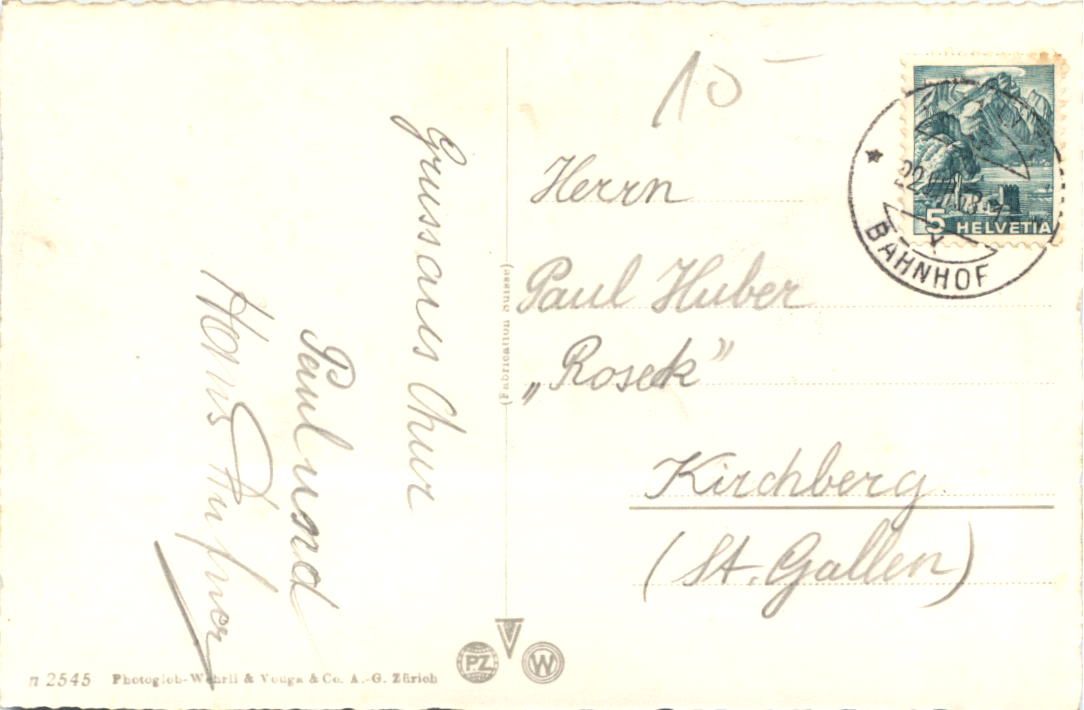 Gruss aus Chur
Paul und
Hans
10 –
Herrn
Paul Huber
„Roseck”
Kirchberg
(St. Gallen)
5 HELVETIA
BAHNHOF
(Fabrication Suisse)
PZ
W
n 2545 Photoglob-Wehrli & Vouga & Co. A.-G. Zürich